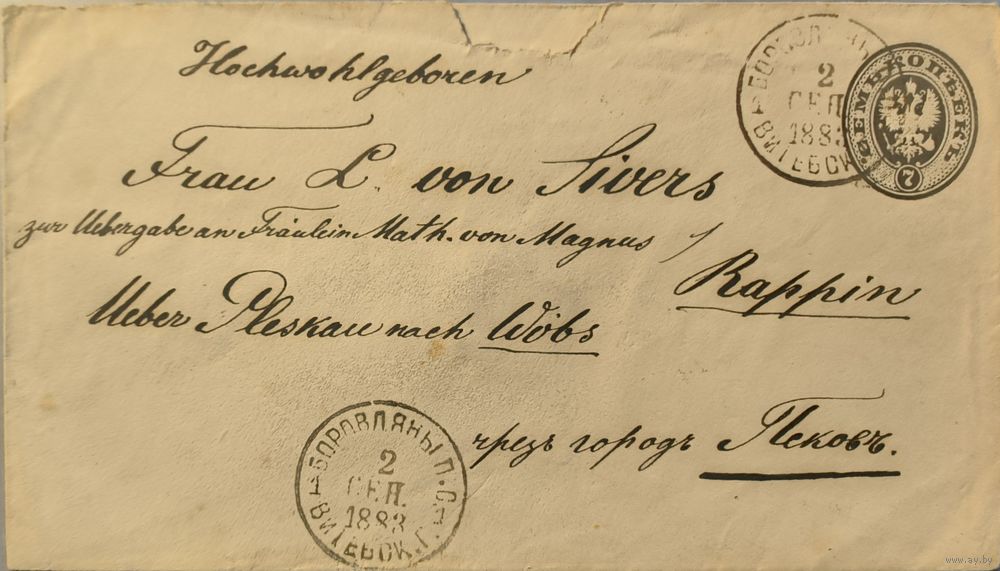 Hochwohlgeboren
Frau L. von Sivers
zur Uebergabe an Fräulein Math. von Magnus /
Rappin
Ueber Pleskau nach Wöbs
чрезъ городъ Псковъ.
БОРОВЛЯНЫ
2
СЕП.
1883
ВИТЕБСК.
СЕМЬ КОПѢЕКЪ
7
БОРОВЛЯНЫ П.С.
2
СЕП.
1883
ВИТЕБСК. Г.
www.ay.by